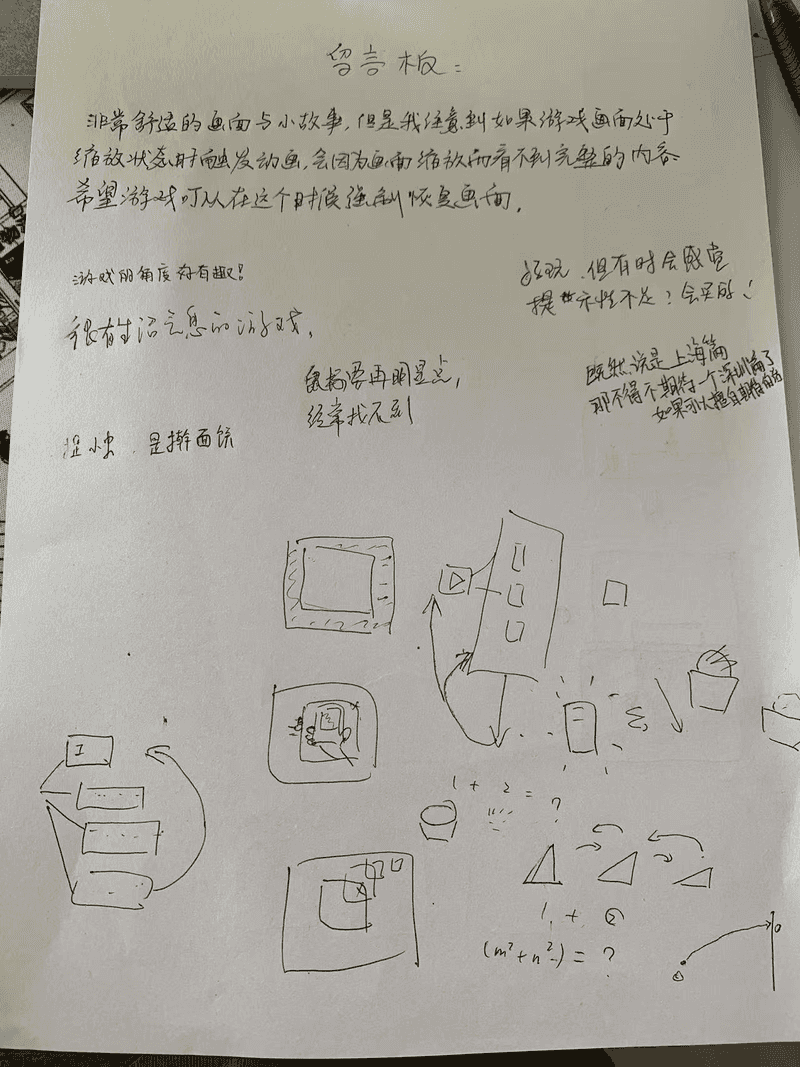 留言板：
非常舒适的画面与小故事，但是我注意到如果游戏画面处于
缩放状态时触发动画，会因为画面缩放而看不到完整的内容
希望游戏可以在这个时候强制恢复画面。
游戏的角度好有趣！
好玩，但有时会感觉
提示性不足？会买的！
很有生活气息的游戏，
鼠标要再明显点，
经常找不到
既然说是上海篇
那不得不期待一个深圳篇了
如果可以
提小虫，是擀面饼
I
1 + 2 = ?
1 + 2
(m²+n²) = ?